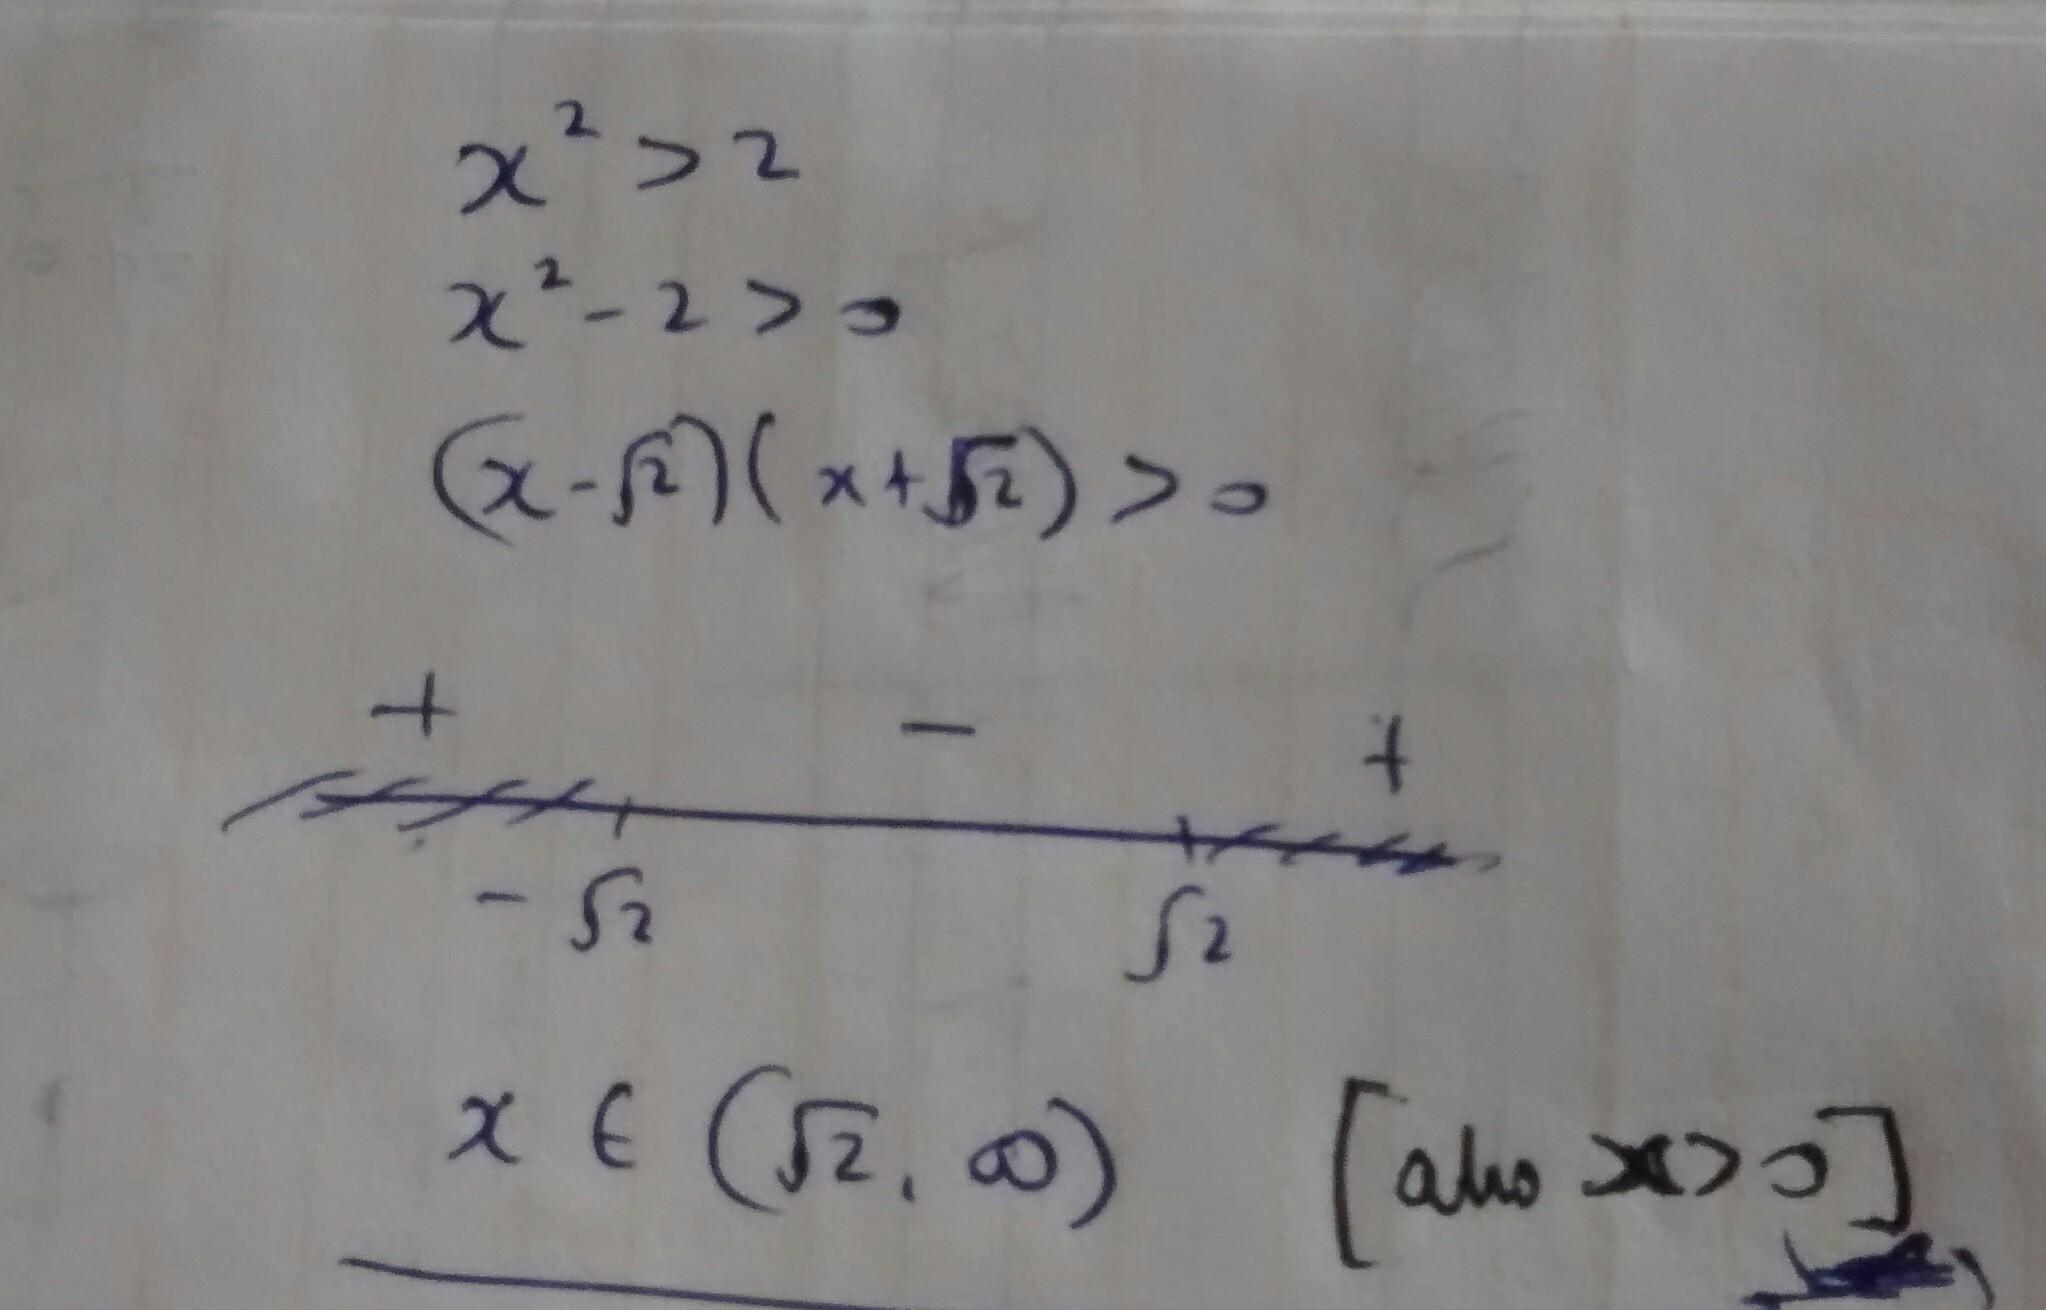 x² > 2
x² - 2 > 0
(x - √2)(x + √2) > 0
+ - +
- √2 √2
x ∈ (√2, ∞) [also x > 0]